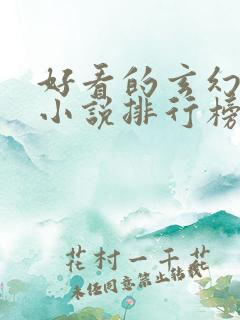 好看的玄幻
小说排行榜
花村一千花
未经同意禁止转载